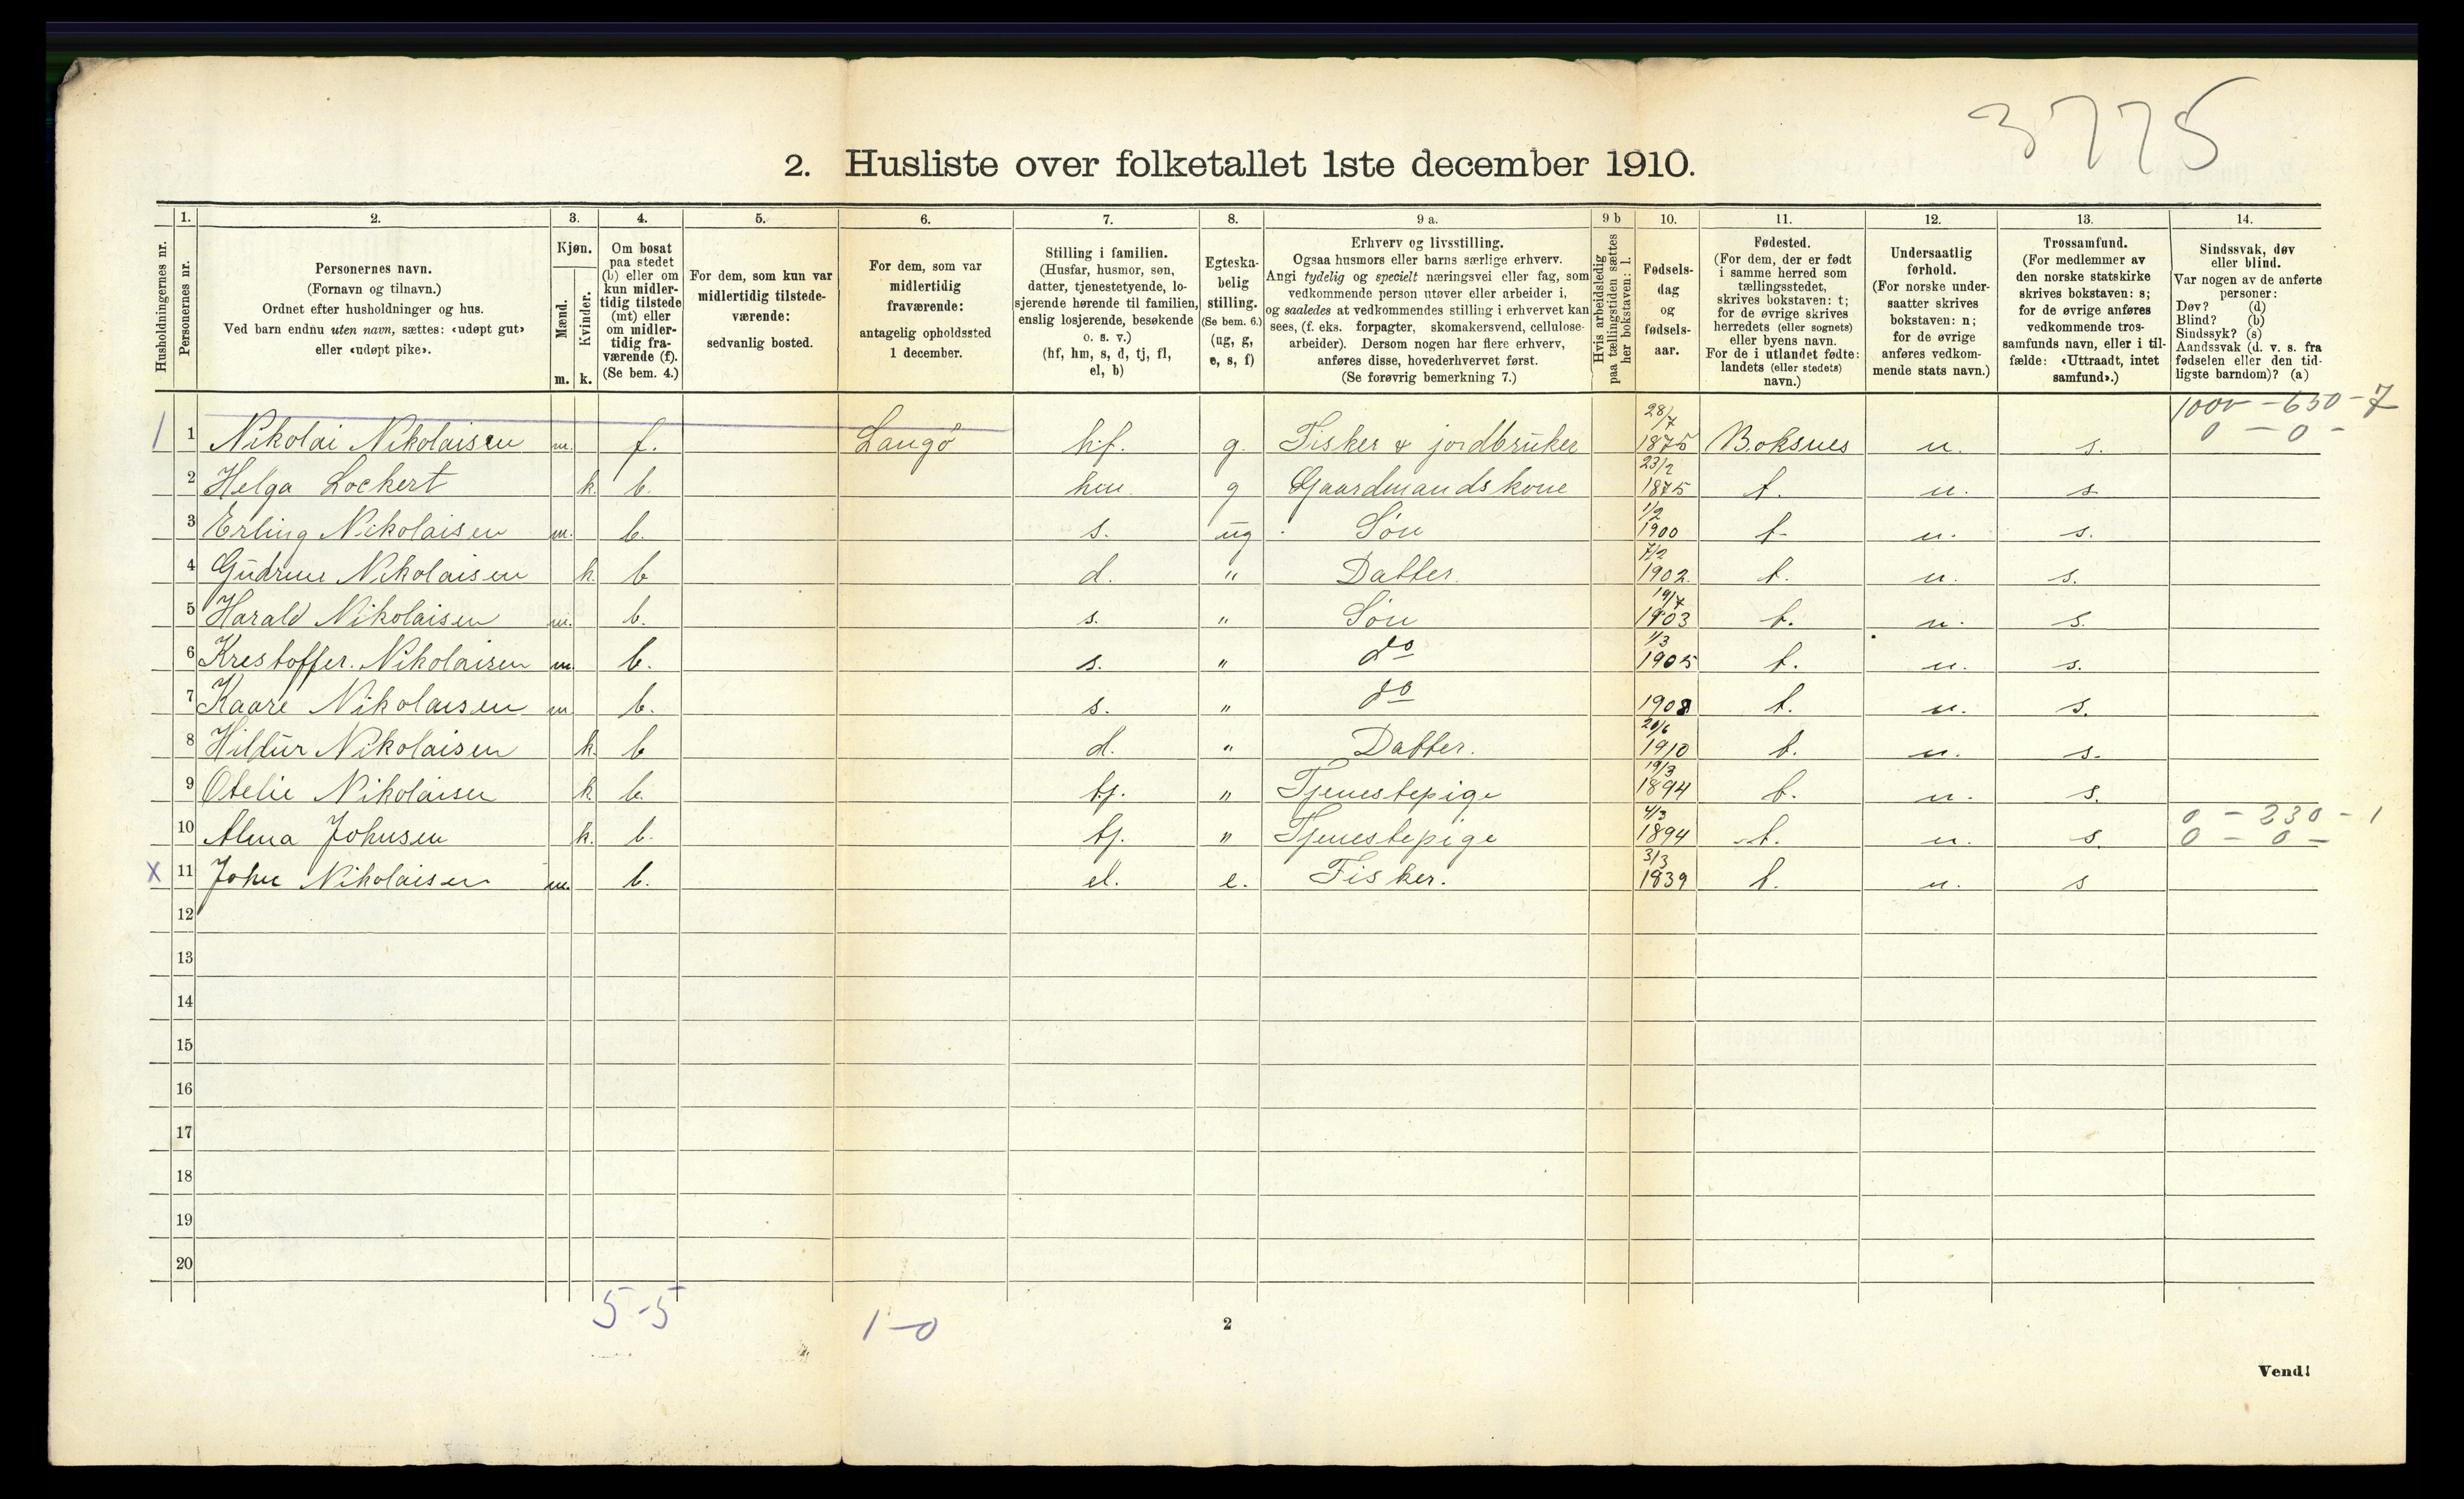 3775
2. Husliste over folketallet 1ste december 1910.
Husholdningernes nr.
1. Personernes nr.
2. Personernes navn. (Fornavn og tilnavn.) Ordnet efter husholdninger og hus. Ved barn endnu uten navn, sættes: «udøpt gut» eller «udøpt pike».
3. Kjøn. Mænd. m. Kvinder. k.
4. Om bosat paa stedet (b) eller om kun midlertidig tilstede (mt) eller om midlertidig fraværende (f). (Se bem. 4.)
5. For dem, som kun var midlertidig tilstedeværende: sedvanlig bosted.
6. For dem, som var midlertidig fraværende: antagelig opholdssted 1 december.
7. Stilling i familien. (Husfar, husmor, søn, datter, tjenestetyende, losjerende hørende til familien, enslig losjerende, besøkende o. s. v.) (hf, hm, s, d, tj, fl, el, b)
8. Egteskabelig stilling. (Se bem. 6.) (ug, g, e, s, f)
9 a. Erhverv og livsstilling. Ogsaa husmors eller barns særlige erhverv. Angi tydelig og specielt næringsvei eller fag, som vedkommende person utøver eller arbeider i, og saaledes at vedkommendes stilling i erhvervet kan sees, (f. eks. forpagter, skomakersvend, cellulosearbeider). Dersom nogen har flere erhverv, anføres disse, hovederhvervet først. (Se forøvrig bemerkning 7.)
9 b Hvis arbeidsledig paa tællingstiden sættes her bokstaven: l.
10. Fødselsdag og fødselsaar.
11. Fødested. (For dem, der er født i samme herred som tællingsstedet, skrives bokstaven: t; for de øvrige skrives herredets (eller sognets) eller byens navn. For de i utlandet fødte: landets (eller stedets) navn.)
12. Undersaatlig forhold. (For norske undersaatter skrives bokstaven: n; for de øvrige anføres vedkommende stats navn.)
13. Trossamfund. (For medlemmer av den norske statskirke skrives bokstaven: s; for de øvrige anføres vedkommende trossamfunds navn, eller i tilfælde: «Uttraadt, intet samfund».)
14. Sindssvak, døv eller blind. Var nogen av de anførte personer: Døv? (d) Blind? (b) Sindssyk? (s) Aandssvak (d. v. s. fra fødselen eller den tidligste barndom)? (a)
1000 - 650 - 7
1 1 Nikolai Nikolaisen m. f. Langø h.f. g. Fisker & jordbruker 28/7 1875 Boksnes n. s. 0 - 0 -
2 Helga Lockert k. b. hm g Gaardmandskone 23/2 1875 t. n. s.
3 Erling Nikolaisen m. b. s. ug Søn 1/2 1900 t. n. s.
4 Gudrun Nikolaisen k. b d. " Datter. 7/2 1902. t. n. s.
5 Harald Nikolaisen m. b. s. " Søn 19/7 1903 t. n. s.
6 Krestoffer. Nikolaisen m. b. s. " do 1/3 1905 t. n. s.
7 Kaare Nikolaisen m b. s. " do 1908 t. n. s.
8 Hildur Nikolaisen k. b d. " Datter. 20/6 1910 t. n. s.
9 Otelie Nikolaisen k b. tj. " Tjenestepige 19/3 1894 t. n. s.
0 - 230 - 1
10 Alma Johnsen k. b. tj. " Tjenestepige 4/3 1894 t. n. s. 0 - 0 -
X 11 John Nikolaisen m. b. el. e. Fisker. 3/3 1839 t. n. s
12
13
14
15
16
17
18
19
20
5-5
1-0
2
Vend!